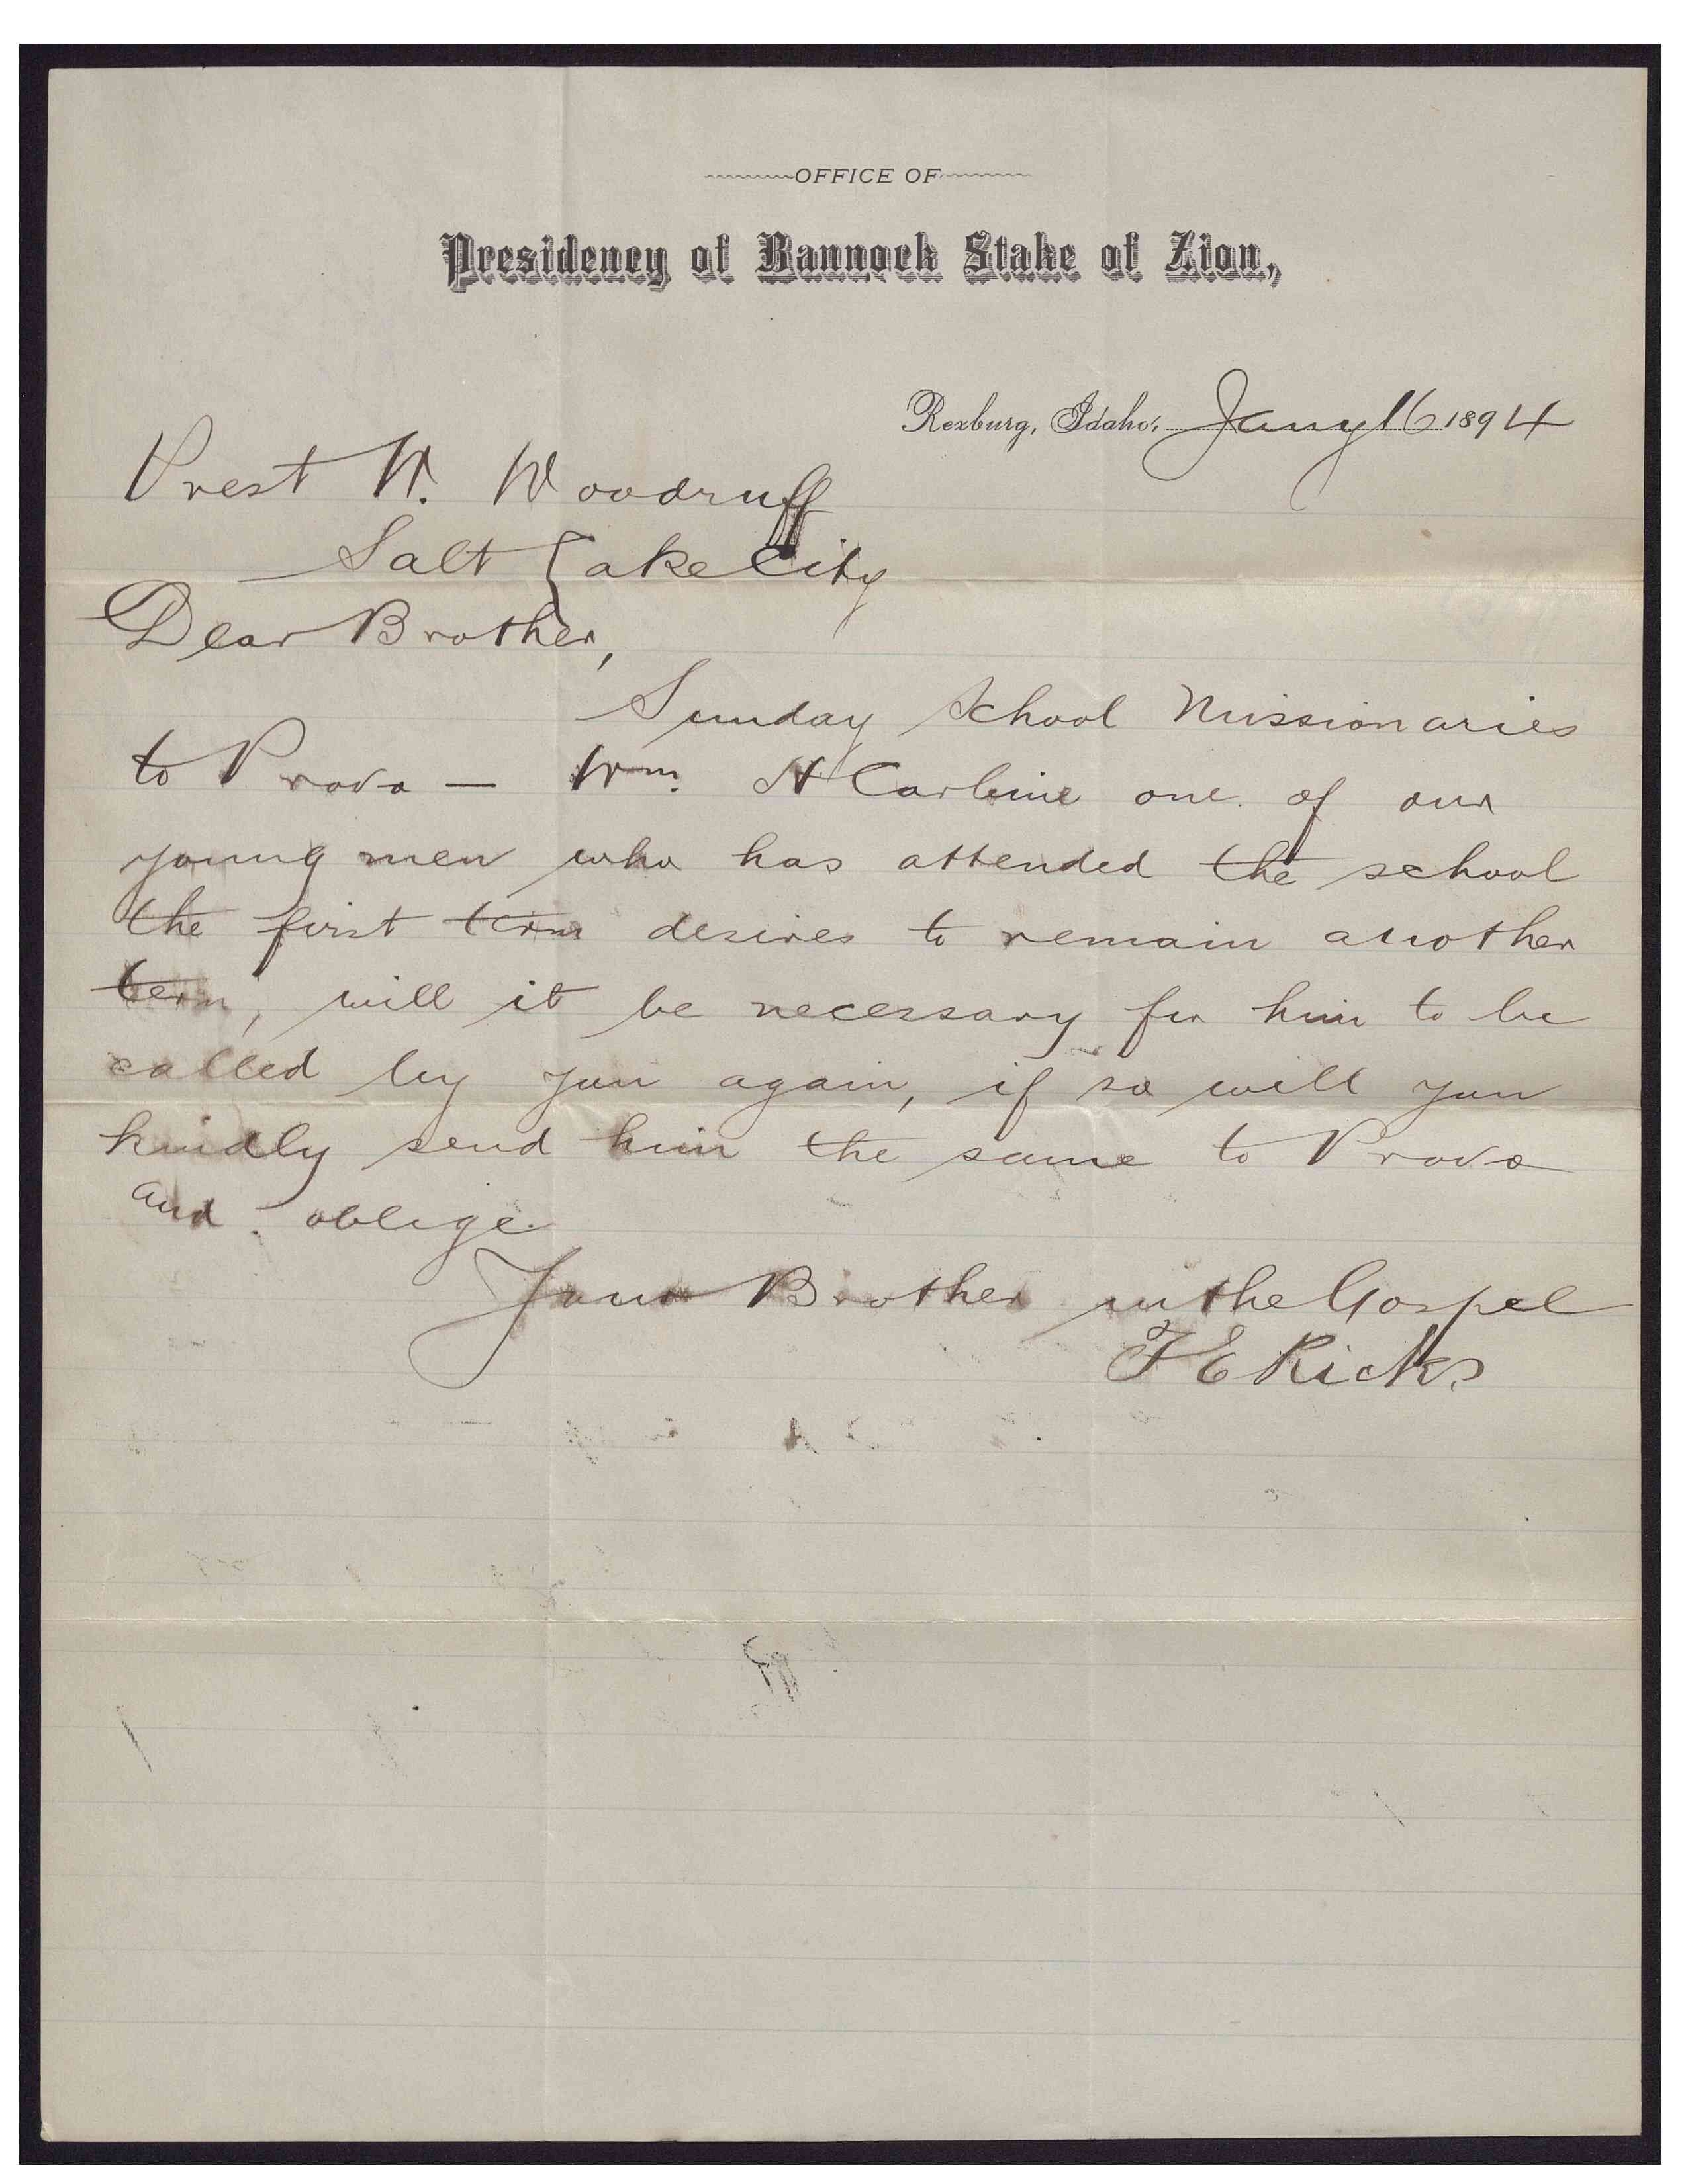 OFFICE OF
Presidency of Bannock Stake of Zion,
Rexburg, Idaho, Jany 16 1894
Prest W. Woodruff
Salt Lake City
Dear Brother,
Sunday School Missionaries
to Provo — Wm. H Carbine one of our
young men who has attended the school
the first term desires to remain another
term, will it be necessary for him to be
called by you again, if so will you
kindly send him the same to Provo
and oblige
Your Brother in the Gospel
F E Ricks